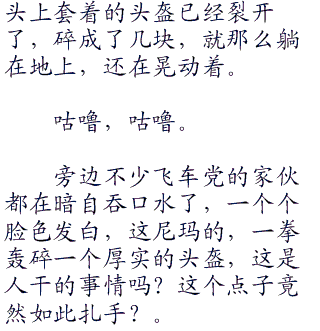 头上套着的头盔已经裂开
了，碎成了几块，就那么躺
在地上，还在晃动着。
咕噜，咕噜。
旁边不少飞车党的家伙
都在暗自吞口水了，一个个
脸色发白，这尼玛的，一拳
轰碎一个厚实的头盔，这是
人干的事情吗？这个点子竟
然如此扎手？。